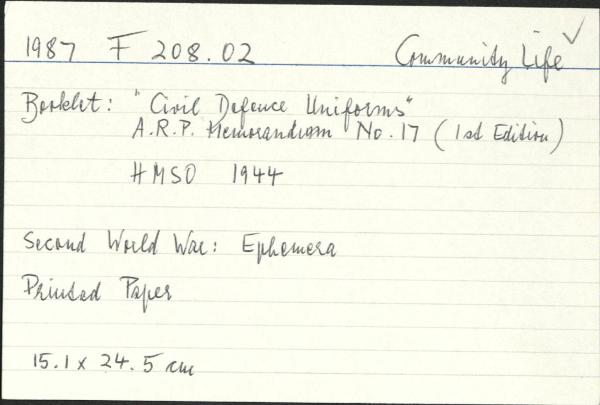 1987 F 208.02 Community Life ✓
Booklet: "Civil Defence Uniforms"
A.R.P. Memorandum No. 17 (1st Edition)
HMSO 1944
Second World War: Ephemera
Printed Paper
15.1 x 24.5 cm